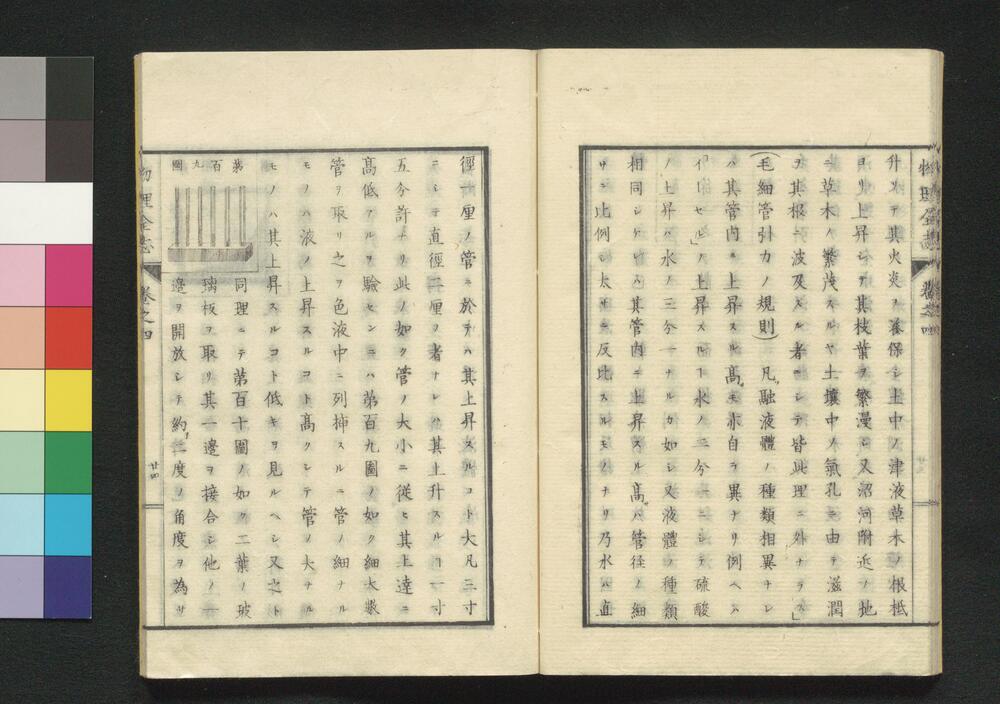 物理全志 卷之四
升シテ其火炎ヲ養保シ土中ノ津液草木ノ根柢
ヨリ上昇シテ其枝葉ヲ繁漫シ又沼河附近ノ地
ニ草木ノ繁茂スルヤ土壤中ノ氣孔ニ由テ滋潤
ヲ其根ニ波及スル者ニシテ皆此理ニ外ナラス」
(毛細管引力ノ規則) 凡融液體ノ種類相異ナレ
ハ其管内ニ上昇スル高モ亦自ラ異ナリ例ヘハ
「イーセル」ノ上昇スルー水ノ二分一ニシテ硫酸
ノ上昇ハ水ノ三分一ナルカ如シ又液體ノ種類
相同シケレハ其管内ニ上昇スル高ハ管径ノ細
サニ比例シ太サニ反比スルモノナリ乃水ハ直
徑一厘ノ管ニ於テハ其上昇スルコト大凡三寸
ニシテ直徑二厘ヲ者ナレハ其上升スルコト一寸
五分許ナリ此ノ如ク管ノ大小ニ從ヒ其上達ニ
高低アルヲ驗センニハ第百九圖ノ如ク細太數
管ヲ取リ之ヲ色液中ニ列揷スルニ管ノ細ナル
モノハ液ノ上昇スルコト高クシテ管ノ大ナル
モノハ其上昇スルコト低キヲ見ルヘシ又之ト
第百九圖
同理ニテ第百十圖ノ如ク二葉ノ玻
璃板ヲ取リ其一邊ヲ接合シ他ノ一
邊ヲ開放シテ約二度ノ角度ヲ為サ
物理全志 卷之四
廿四